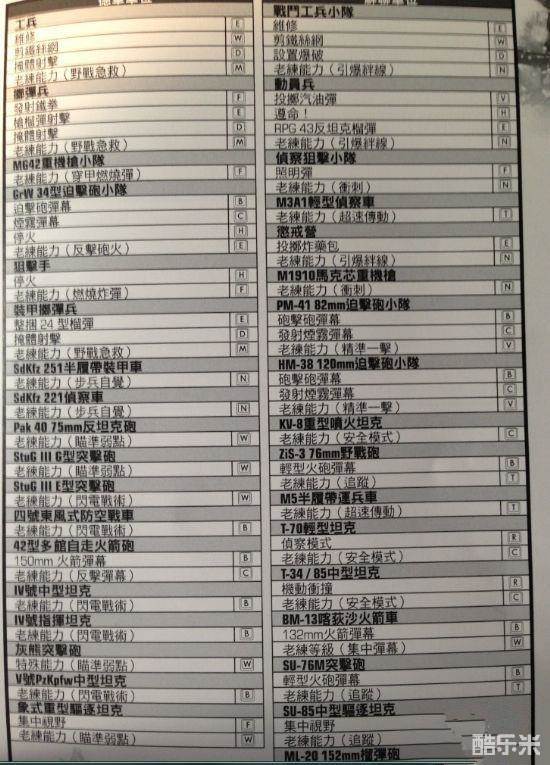 德軍單位
工兵
維修 E
剪鐵絲網 W
掩體射擊 D
老練能力（野戰急救） M
擲彈兵
發射鐵拳 F
槍榴彈射擊 E
掩體射擊 D
老練能力（野戰急救） M
MG42重機槍小隊
老練能力（穿甲燃燒彈） F
GrW 34型迫擊砲小隊
迫擊砲彈幕 B
煙霧彈幕 C
停火 H
老練能力（反擊砲火） E
狙擊手
停火 H
老練能力（燃燒炸彈） F
裝甲擲彈兵
整捆 24 型榴彈 E
掩體射擊 D
老練能力（野戰急救） M
SdKfz 251半履帶裝甲車
老練能力（步兵自覺） N
SdKfz 221偵察車
老練能力（步兵自覺） N
Pak 40 75mm反坦克砲
老練能力（瞄準弱點） W
StuG III G型突擊砲
老練能力（瞄準弱點） W
StuG III E型突擊砲
老練能力（閃電戰術） W
四號東風式防空戰車
老練能力（閃電戰術） B
42型多館自走火箭砲
150mm 火箭彈幕 B
老練能力（反擊彈幕） C
IV號中型坦克
老練能力（閃電戰術） B
IV號指揮坦克
老練能力（閃電戰術） B
灰熊突擊砲
特殊能力（瞄準弱點） W
V號PzKpfw中型坦克
老練能力（閃電戰術） B
象式重型驅逐坦克
集中視野 F
老練能力（瞄準弱點） W
蘇聯單位
戰鬥工兵小隊
維修 E
剪鐵絲網 W
設置爆破 D
老練能力（引爆絆線） N
動員兵
投擲汽油彈 V
遵命！ H
RPG 43反坦克榴彈 E
老練能力（引爆絆線） N
偵察狙擊小隊
照明彈 F
老練能力（衝刺） N
M3A1輕型偵察車
老練能力（超速傳動） T
懲戒營
投擲炸藥包 E
老練能力（引爆絆線） N
M1910馬克芯重機槍
老練能力（衝刺） N
PM-41 82mm迫擊砲小隊
砲擊砲彈幕 B
發射煙霧彈幕 C
老練能力（精準一擊） V
HM-38 120mm迫擊砲小隊
砲擊砲彈幕 B
發射煙霧彈幕 C
老練能力（精準一擊） V
KV-8重型噴火坦克
老練能力（安全模式） C
ZiS-3 76mm野戰砲
輕型火砲彈幕 B
老練能力（追蹤） T
M5半履帶運兵車
老練能力（超速傳動） T
T-70輕型坦克
偵察模式 R
老練能力（安全模式） C
T-34 / 85中型坦克
機動衝撞 R
老練能力（安全模式） C
BM-13喀荻沙火箭車
132mm火箭彈幕 B
老練等級（集中彈幕） W
SU-76M突擊砲
輕型火砲彈幕 B
老練能力（追蹤） T
SU-85中型驅逐坦克
集中視野
老練能力（追蹤）
ML-20 152mm榴彈砲
酷乐米